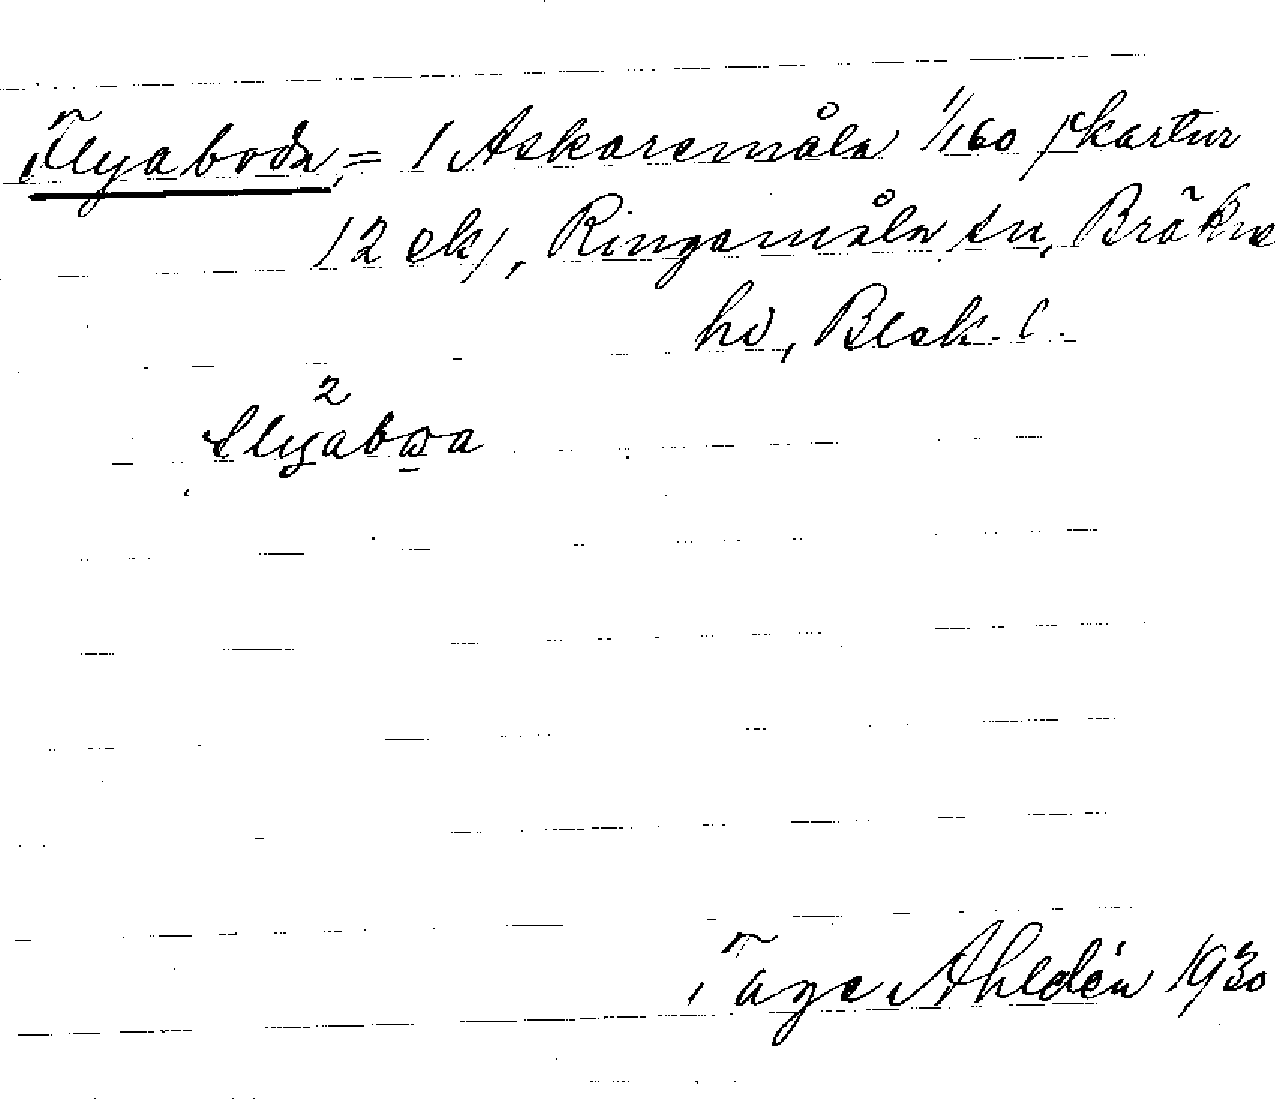 Flyaboda, = 1 Askaremåla 1/160 /kartur
12 ek/, Ringamåla sn, Bräkne
hd, Blek. l.
2
flyabωa
Tage Ahldén 1930